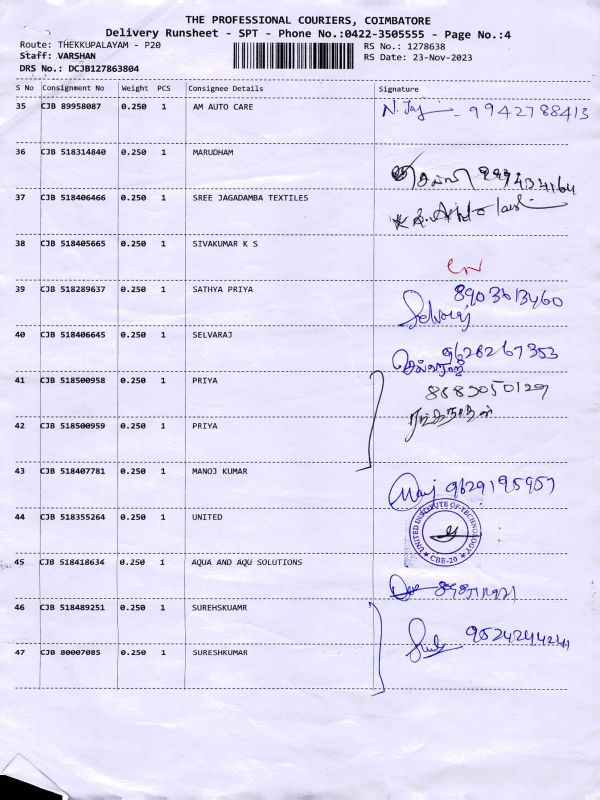 THE PROFESSIONAL COURIERS, COIMBATORE
Delivery Runsheet - SPT - Phone No.:0422-3505555 - Page No.:4
Route: THEKKUPALAYAM - P20 RS No.: 1278638
Staff: VARSHAN RS Date: 23-Nov-2023
DRS No.: DCJB127863804
S No Consignment No Weight PCS Consignee Details Signature
35 CJB 89958087 0.250 1 AM AUTO CARE N. Jay 9942788413
36 CJB 518314840 0.250 1 MARUDHAM
37 CJB 518406466 0.250 1 SREE JAGADAMBA TEXTILES
38 CJB 518405665 0.250 1 SIVAKUMAR K S
39 CJB 518289637 0.250 1 SATHYA PRIYA 8903613460
Selvaraj
40 CJB 518406645 0.250 1 SELVARAJ 9626267353
செல்வராஜ்
41 CJB 518500958 0.250 1 PRIYA 8883050129
42 CJB 518500959 0.250 1 PRIYA
43 CJB 518407781 0.250 1 MANOJ KUMAR Manj 9629195957
44 CJB 518355264 0.250 1 UNITED
UNITED INSTITUTE OF TECHNOLOGY
CBE-20
45 CJB 518418634 0.250 1 AQUA AND AQU SOLUTIONS
46 CJB 518489251 0.250 1 SUREHSKUAMR 9524244241
47 CJB 80007085 0.250 1 SURESHKUMAR